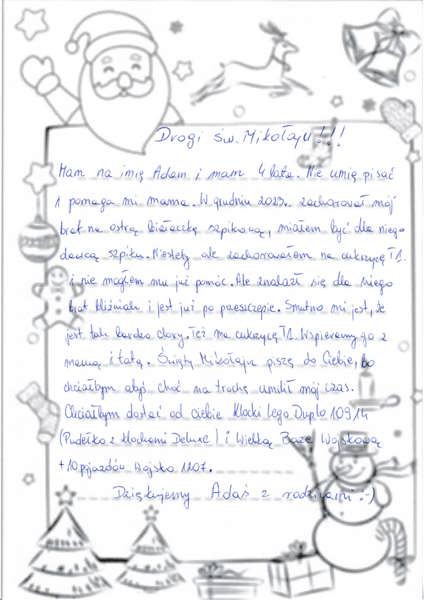 Drogi św. Mikołaju!!!
Mam na imię Adam i mam 4 lata. Nie umię pisać
i pomaga mi mama. W grudniu 2023. zachorował mój
brat na ostrą białaczkę szpikową, miałem być dla niego
dawcą szpiku. Niestety ale zachorowałem na cukrzycę T1.
i nie mogłem mu już pomóc. Ale znalazł się dla niego
brat bliźniak i jest już po przeszczepie. Smutno mi jest, że
jest tak bardzo chory. Też ma cukrzycę T1. Wspieramy go z
mamą i tatą. Święty Mikołaju piszę do Ciebie, bo
chciałbym abyś choć na trochę umilił mój czas.
Chciałbym dostać od ciebie klocki Lego Duplo 10914
(Pudełko z klockami Deluxe) i Wielką Bazę Wojskową
+ 10 pojazdów Wojsko 1107.
Dziękujemy Adaś z rodzicami :-)